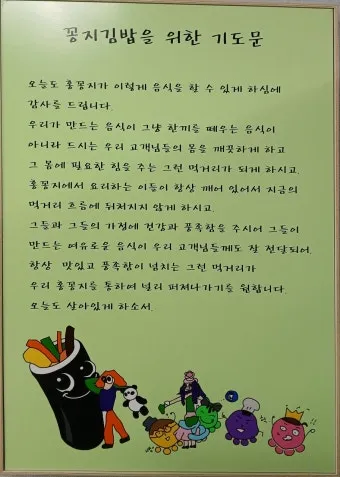 꽁지김밥을 위한 기도문
오늘도 홀꽁지가 이렇게 음식을 할 수 있게 하심에
감사를 드립니다.
우리가 만드는 음식이 그냥 한끼를 때우는 음식이
아니라 드시는 우리 고객님들의 몸을 깨끗하게 하고
그 몸에 필요한 힘을 주는 그런 먹거리가 되게 하시고.
홀꽁지에서 요리하는 이들이 항상 깨어 있어서 지금의
먹거리 흐름에 뒤쳐지지 않게 하시고.
그들과 그들의 가정에 건강과 풍족함을 주시어 그들이
만드는 여유로운 음식이 우리 고객님들께도 잘 전달되어.
항상 맛있고 풍족함이 넘치는 그런 먹거리가
우리 홀꽁지를 통하여 널리 퍼져나가기를 원합니다.
오늘도 살아있게 하소서.